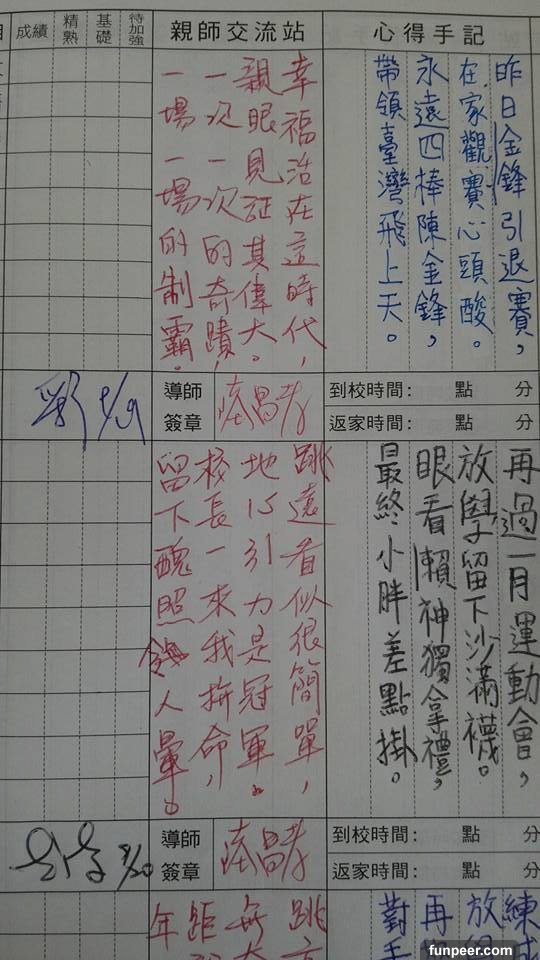 心得手記
昨日金鋒引退賽，
在家觀賽心頭酸。
永遠四棒陳金鋒，
帶領臺灣飛上天。
親師交流站
幸福活在這時代，
親眼見証其偉大。
一次一次的奇蹟，
一場一場的制霸。
待加強
基礎
精熟
成績
到校時間： 點 分
返家時間： 點 分
導師
簽章
再過一月運動會，
放學留下沙滿襪。
眼看賴神獨拿禮，
最終小胖差點掛。
跳遠看似很簡單，
地心引力是冠軍。
校長一來我拚命，
留下醜照人暈。
到校時間： 點 分
返家時間： 點 分
導師
簽章
9/20
練
放
再
對手
跳
年距
funpeer.com